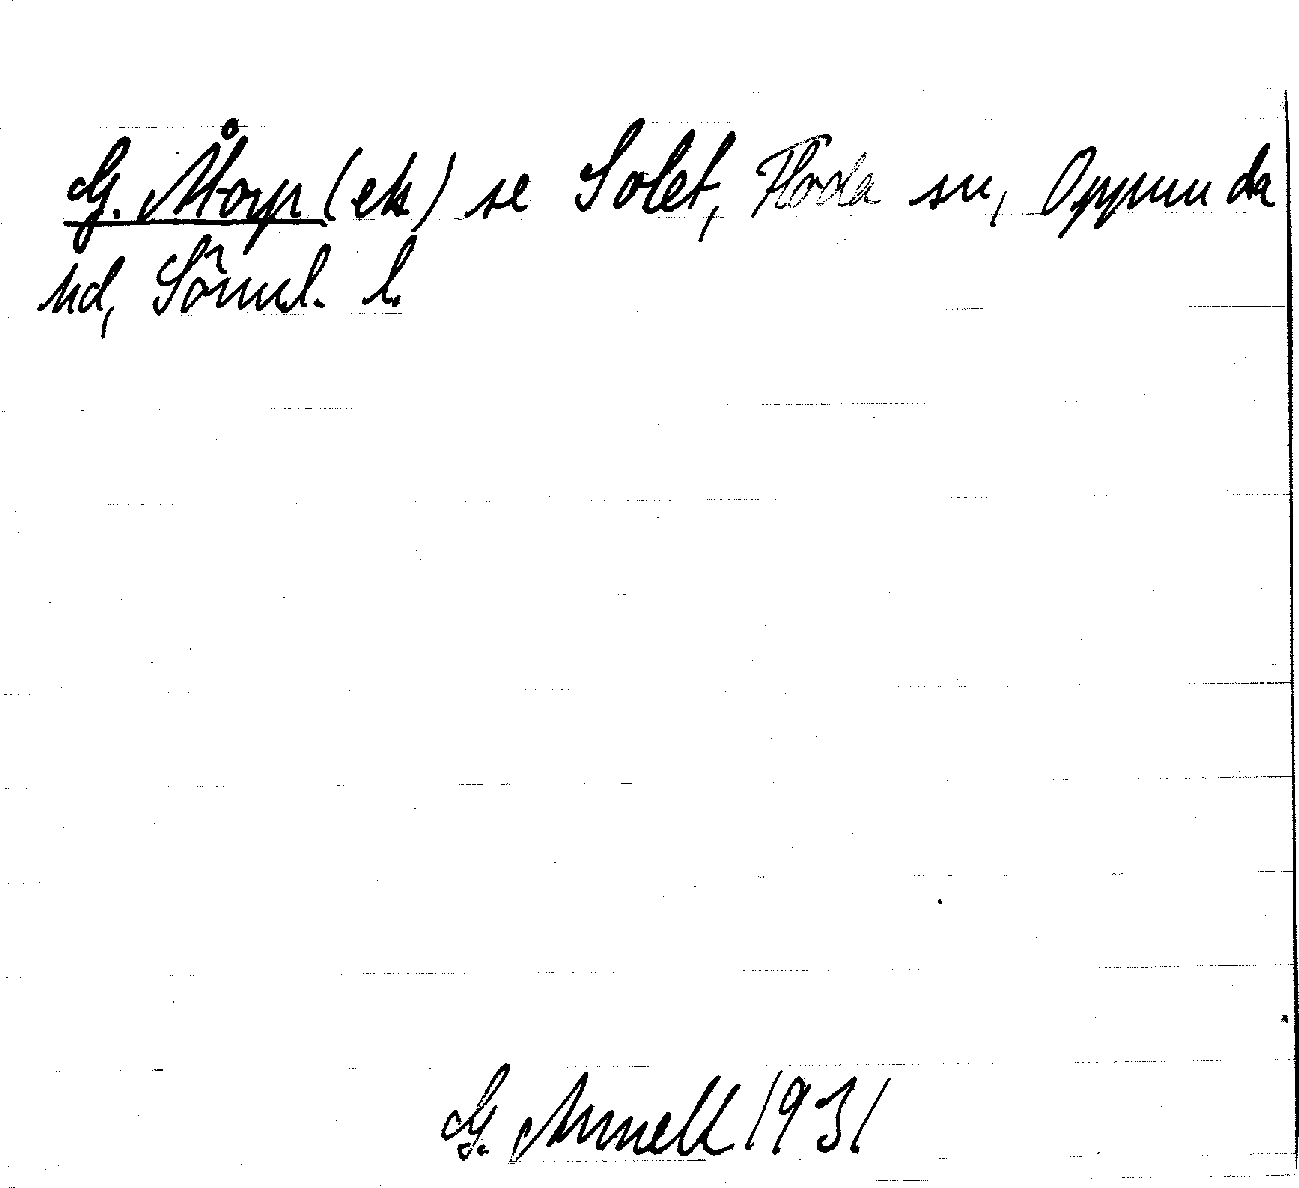 G. Åtorp (ek) se Solet, Floda sn, Oppunda
hd, Sörml. l.
G. Arnell 1931